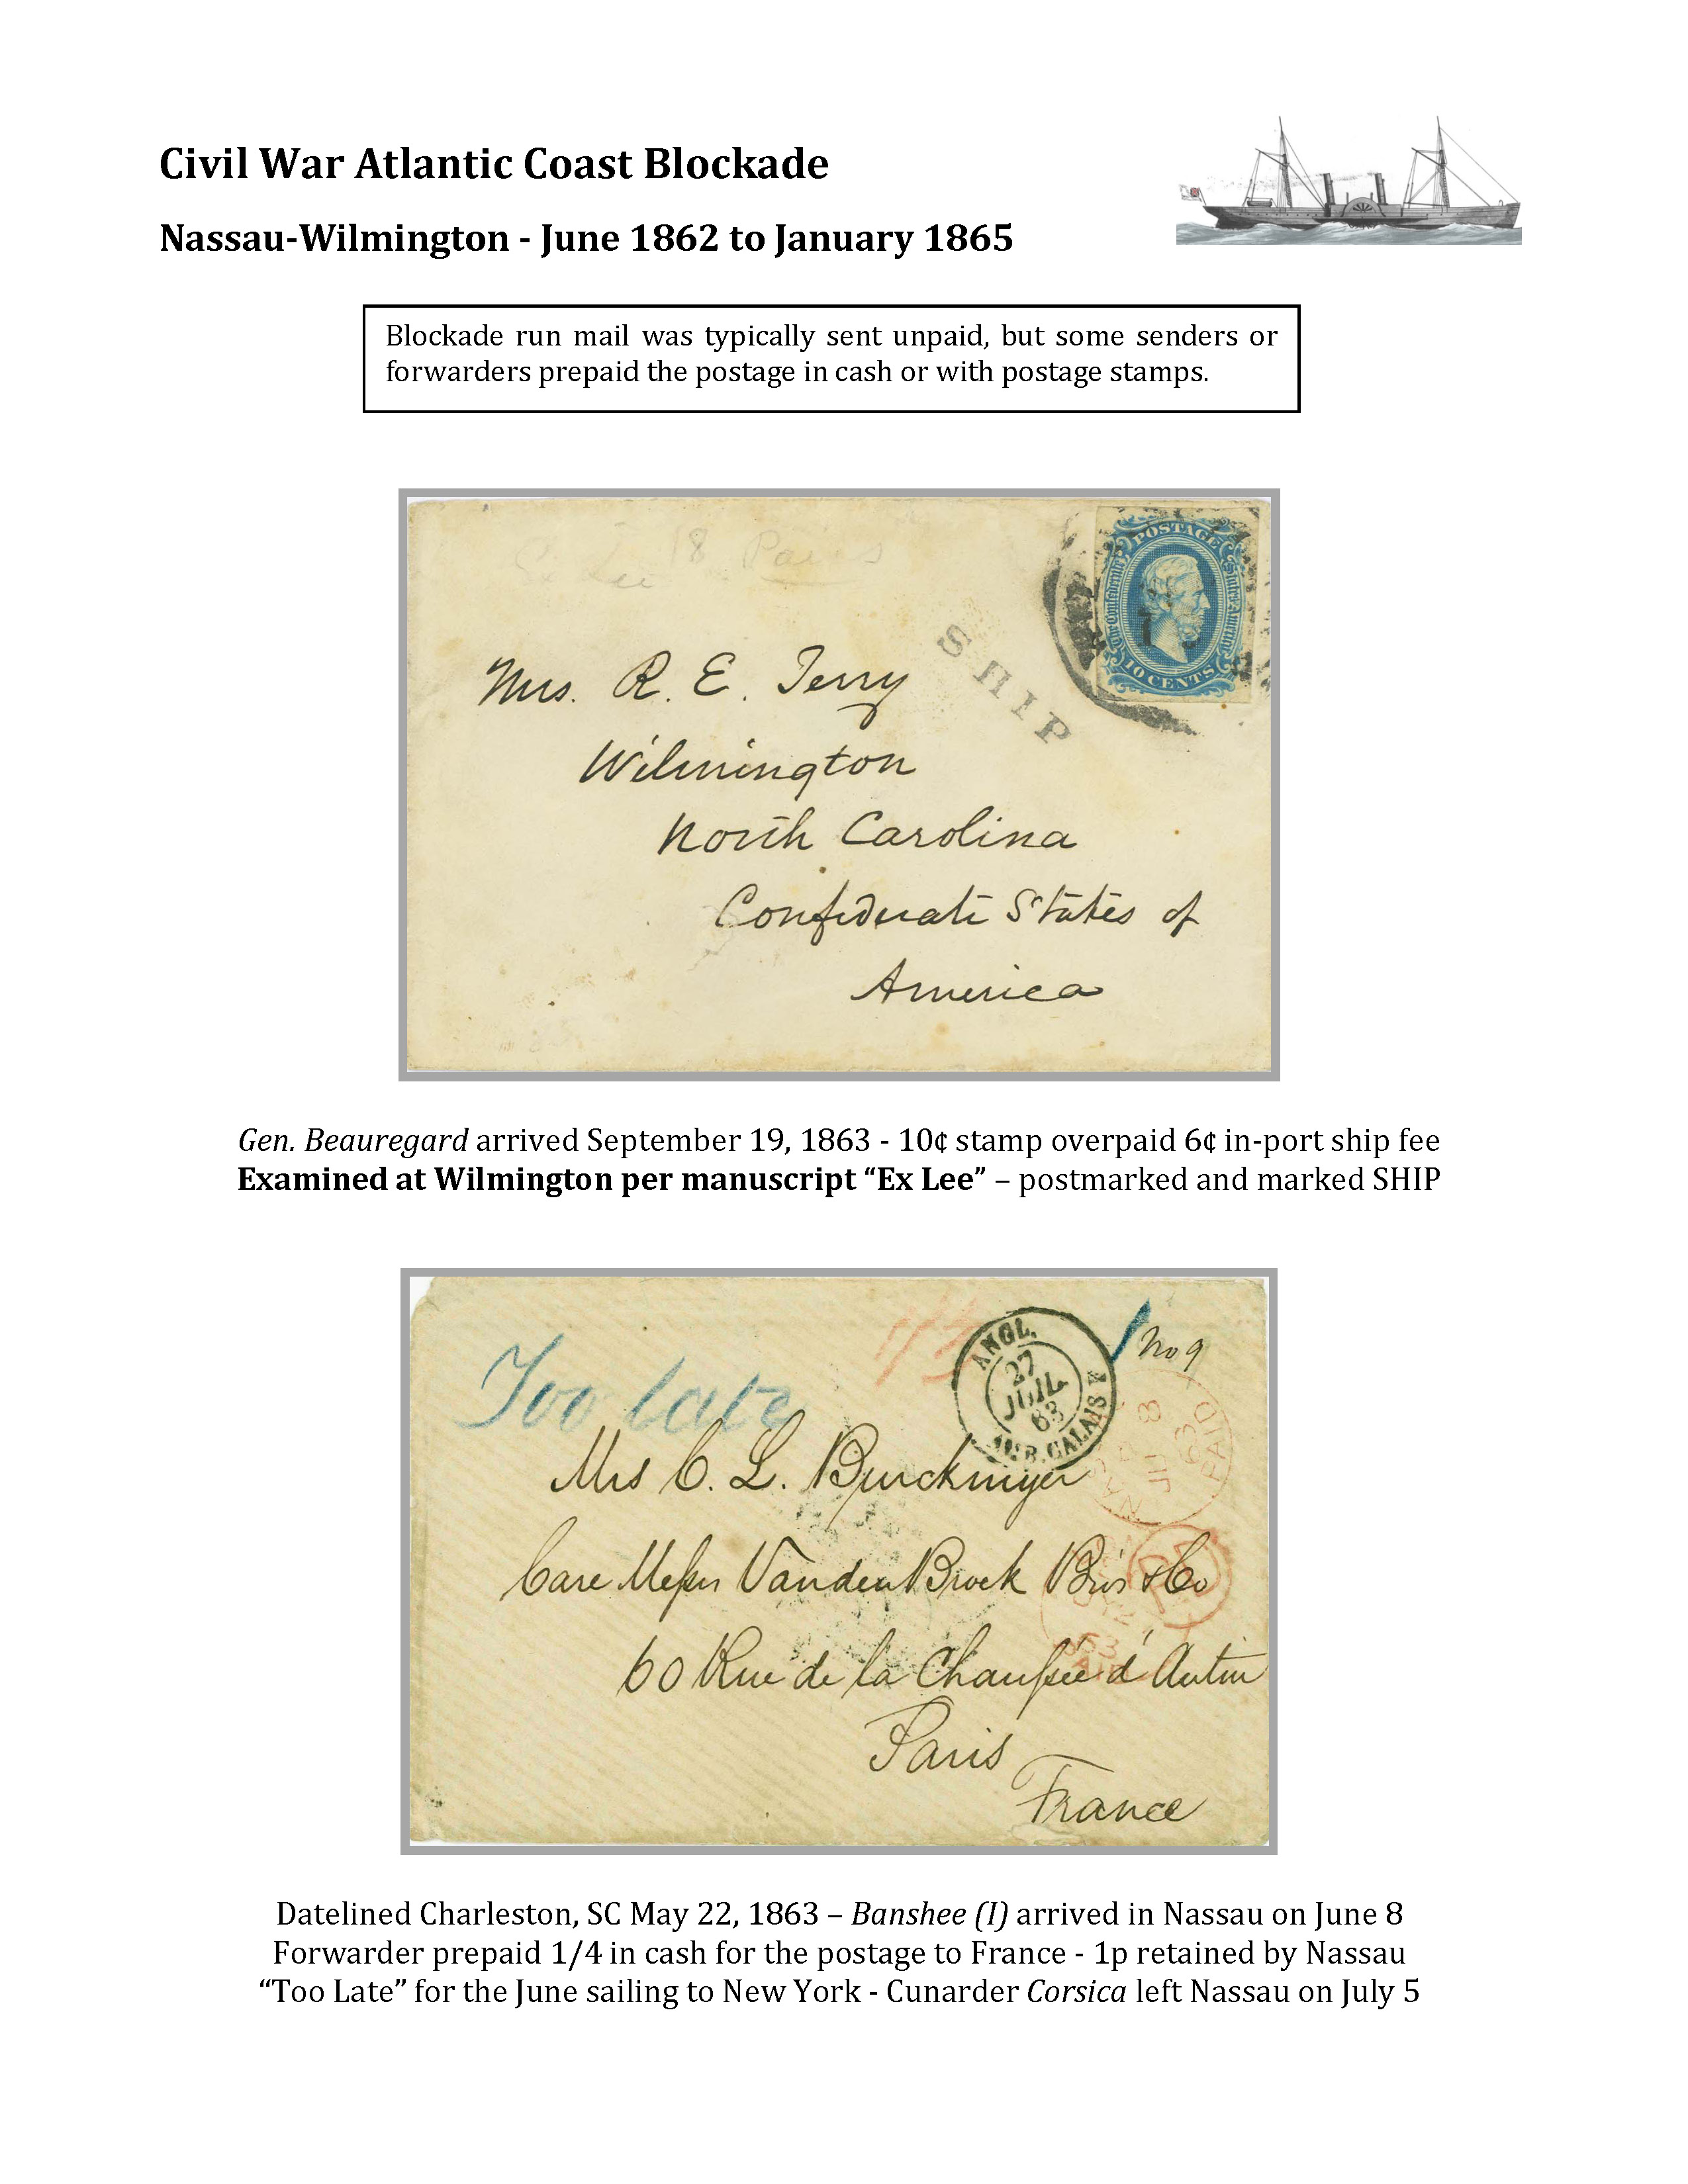 Civil War Atlantic Coast Blockade
Nassau-Wilmington - June 1862 to January 1865
Blockade run mail was typically sent unpaid, but some senders or
forwarders prepaid the postage in cash or with postage stamps.
Ex Lee 18 Paris
POSTAGE
The Confederate States America
10 CENTS
SHIP
Mrs. R. E. Terry
Wilmington
North Carolina
Confederate States of
America
Gen. Beauregard arrived September 19, 1863 - 10¢ stamp overpaid 6¢ in-port ship fee
Examined at Wilmington per manuscript “Ex Lee” – postmarked and marked SHIP
Too late
ANGL.
27
JUIL
63
AMB. CALAIS
1 No 9
JU 8
63
PAID
Mrs C. L. Burckmyer
Care Messrs VandenBroek Bros & Co
PD
60 Rue de la Chaussée d'Antin
63
Paris
France
Datelined Charleston, SC May 22, 1863 – Banshee (I) arrived in Nassau on June 8
Forwarder prepaid 1/4 in cash for the postage to France - 1p retained by Nassau
“Too Late” for the June sailing to New York - Cunarder Corsica left Nassau on July 5